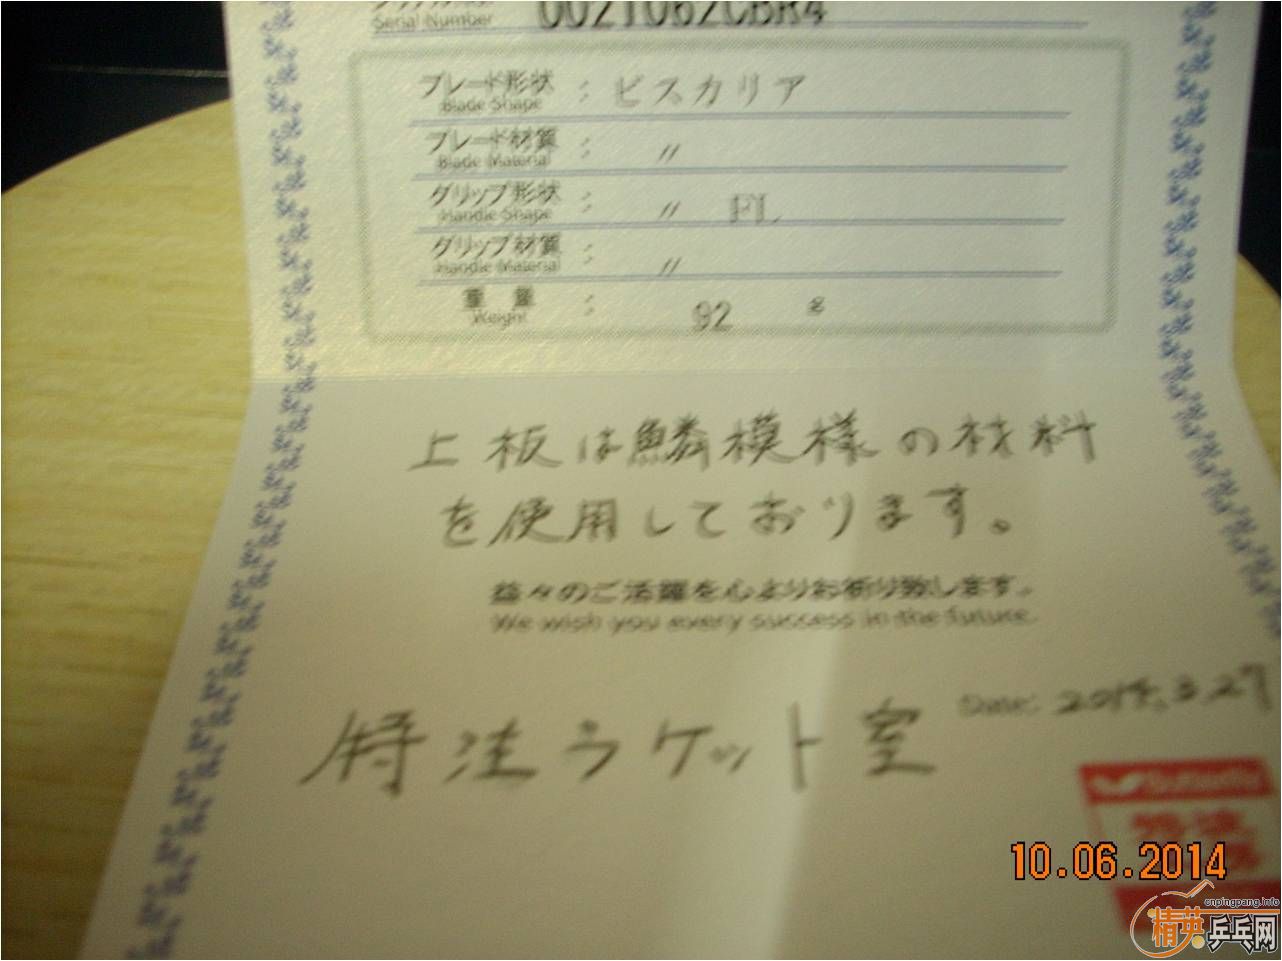 Serial Number 0021062CBR4
ブレード形状 : ビスカリア
Blade Shape
ブレード材質 : 〃
Blade Material
グリップ形状 : 〃 FL
Handle Shape
グリップ材質 : 〃
Handle Material
重量 : 92 g
Weight
上板は鱗模様の材料
を使用しております。
益々のご活躍を心よりお祈り致します。
We wish you every success in the future.
Date: 2014.3.27
特注ラケット室
Butterfly
10.06.2014
cnpingpang.info
精英乒乓网